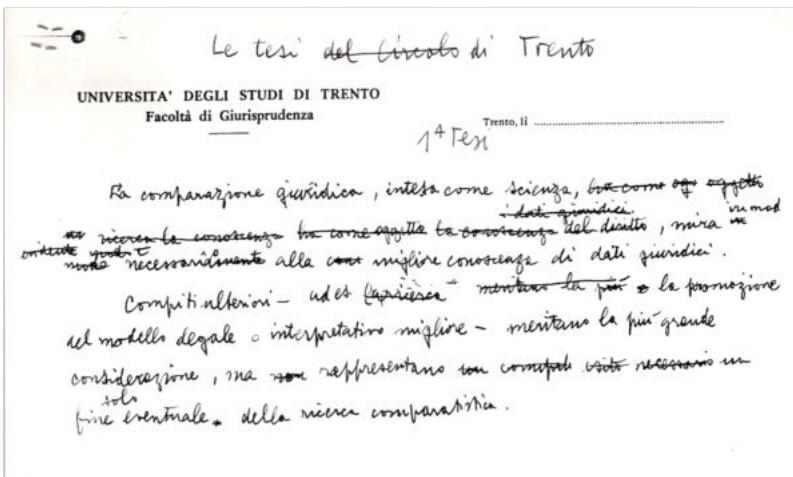 Le tesi del Circolo di Trento
UNIVERSITA' DEGLI STUDI DI TRENTO
Facoltà di Giurisprudenza
Trento, lì
1ª Tesi
La comparazione giuridica, intesa come scienza, ha come ogg oggetto
i dati giuridici
ricerca la conoscenza ha come oggetto la conoscenza del diritto, mira in mod
necessariamente alla migliore conoscenza di dati giuridici.
Compiti ulteriori – ad es la ricerca meritano la più la promozione
del modello legale o interpretativo migliore – meritano la più grande
considerazione, ma non rappresentano un necessario un
solo
fine eventuale della ricerca comparatistica.